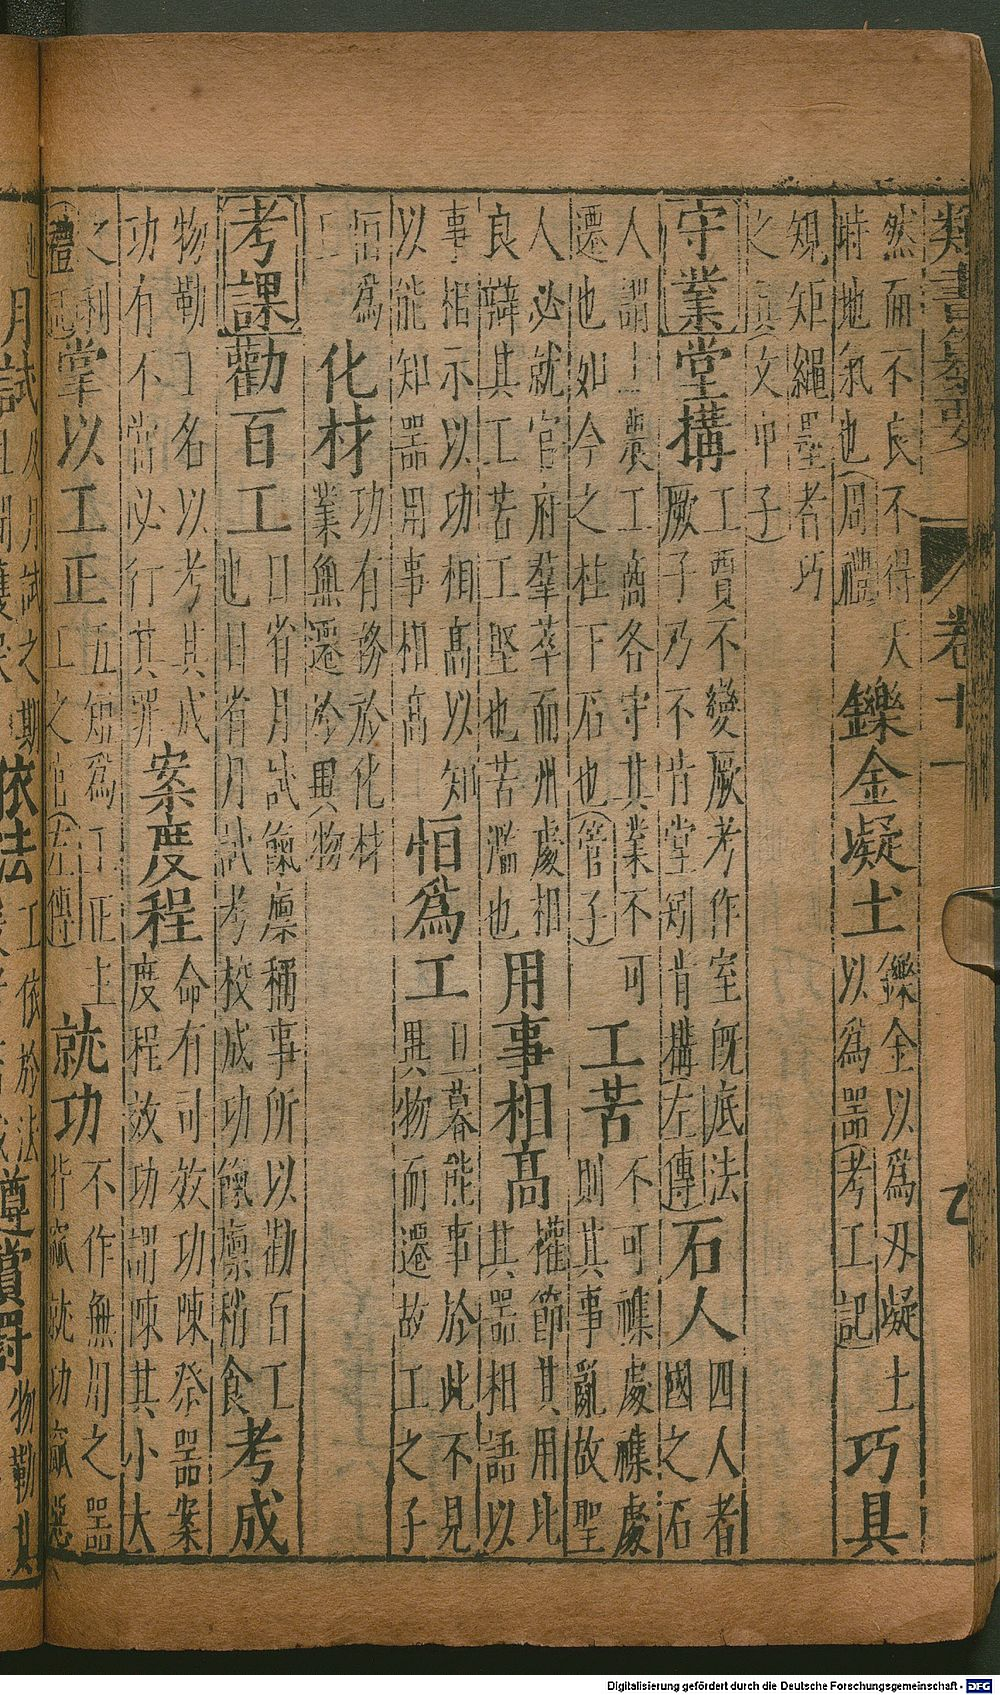 類書纂要 卷十一 乙
然而不良不得天
時地氣也(周禮)
鑠金凝土
鑠金以為刃凝土
以為器(考工記)
巧具
規矩繩墨者巧
之具(文中子)
守業
堂構
工賈不變厥考作室旣底法
厥子乃不肯堂矧肯構(左傳)
石人
四人者
國之石
人謂士農工啇各守其業不可
遷也如今之柱下石也(管子)
工苦
不可襍處襍處
則其事亂故聖
人必就官府羣萃而州處相
良辯其工苦工堅也苦濫也
用事相高
權節其用比
其器相語以
事相示以功相高以知
以能知器用事相高
恒為工
旦暮能事於此不見
異物而遷故工之子
恒為
工
化材
功有務於化材
業無遷於異物
考課
勸百工
日省月試餼廩稱事所以勸百工
也日省月試考校成功餼廩稍食
考成
物勒工名以考其成
功有不當必行其罪
案度程
命有司效功陳祭器案
度程效功謂陳其小大
之利
(禮記)
掌以工正
五雉為工正主
工之官(左傳)
就功
不作無用之器
皆窳就功窳惡
也
月試
及月試之期
依法
工依於法
遵賞罰
物勒其
Digitalisierung gefördert durch die Deutsche Forschungsgemeinschaft - DFG